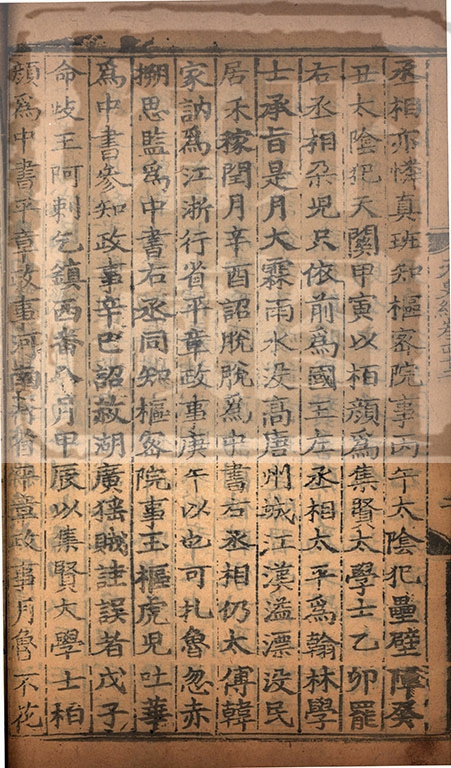 丞相亦憐真班知樞密院事丙午太陰犯壘壁陣癸
丑太陰犯天關甲寅以栢顔爲集賢大學士乙卯罷
右丞相朶兒只依前爲國王左丞相太平爲翰林學
士承旨是月大霖雨水没高唐州城江漢溢漂没民
居禾稼閏月辛酉詔脫脫爲中書右丞相仍太傅韓
家訥爲江浙行省平章政事庚午以也可扎魯忽赤
搠思監爲中書右丞同知樞密院事玉樞虎兒吐華
爲中書參知政事辛巳詔赦湖廣猺賊詿誤者戊子
命歧王阿剌乞鎮西番八月甲辰以集賢大學士栢
顔爲中書平章政事河南行省平章政事月魯不花